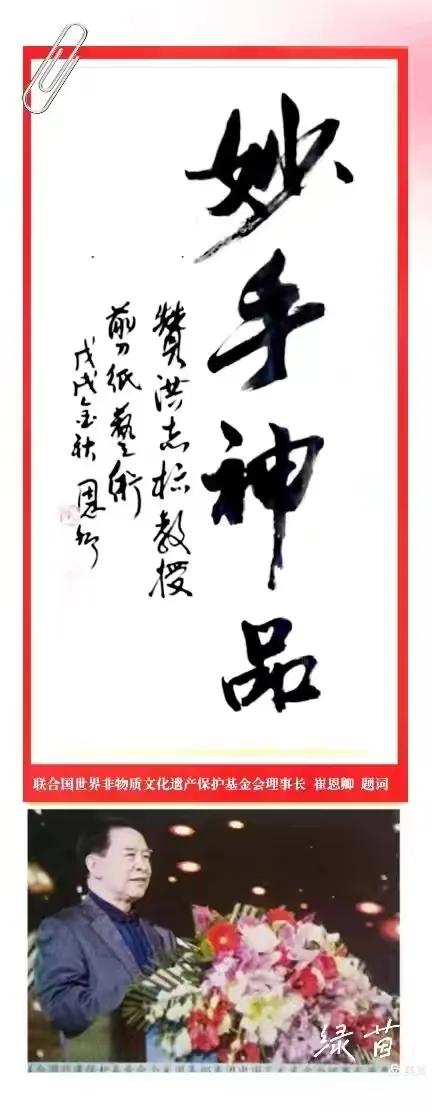 妙手神品
赞洪志标教授
剪纸藝術
戊戌金秋 恩卿
联合国世界非物质文化遗产保护基金会理事长 崔恩卿 题词
绿苗